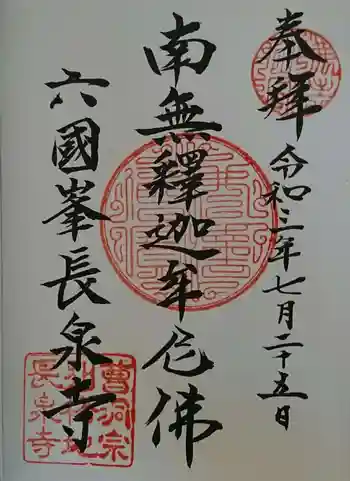 奉拝
令和三年七月二十五日
南無釋迦牟尼佛
六國峯長泉寺
曹洞宗
長泉寺